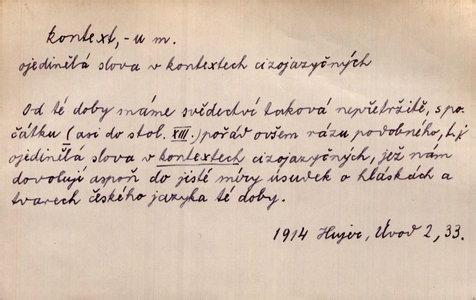 kontext, -u m.
ojedinělá slova v kontextech cizojazyčných
Od té doby máme svědectví taková nepřetržitě, s po-
čátku (asi do stol. XIII.) pořád ovšem rázu podobného, t. j.
ojedinělá slova v kontextech cizojazyčných, jež nám
dovolují aspoň do jisté míry úsudek o hláskách a
tvarech českého jazyka té doby.
1914 Hujer, Úvod 2, 33.